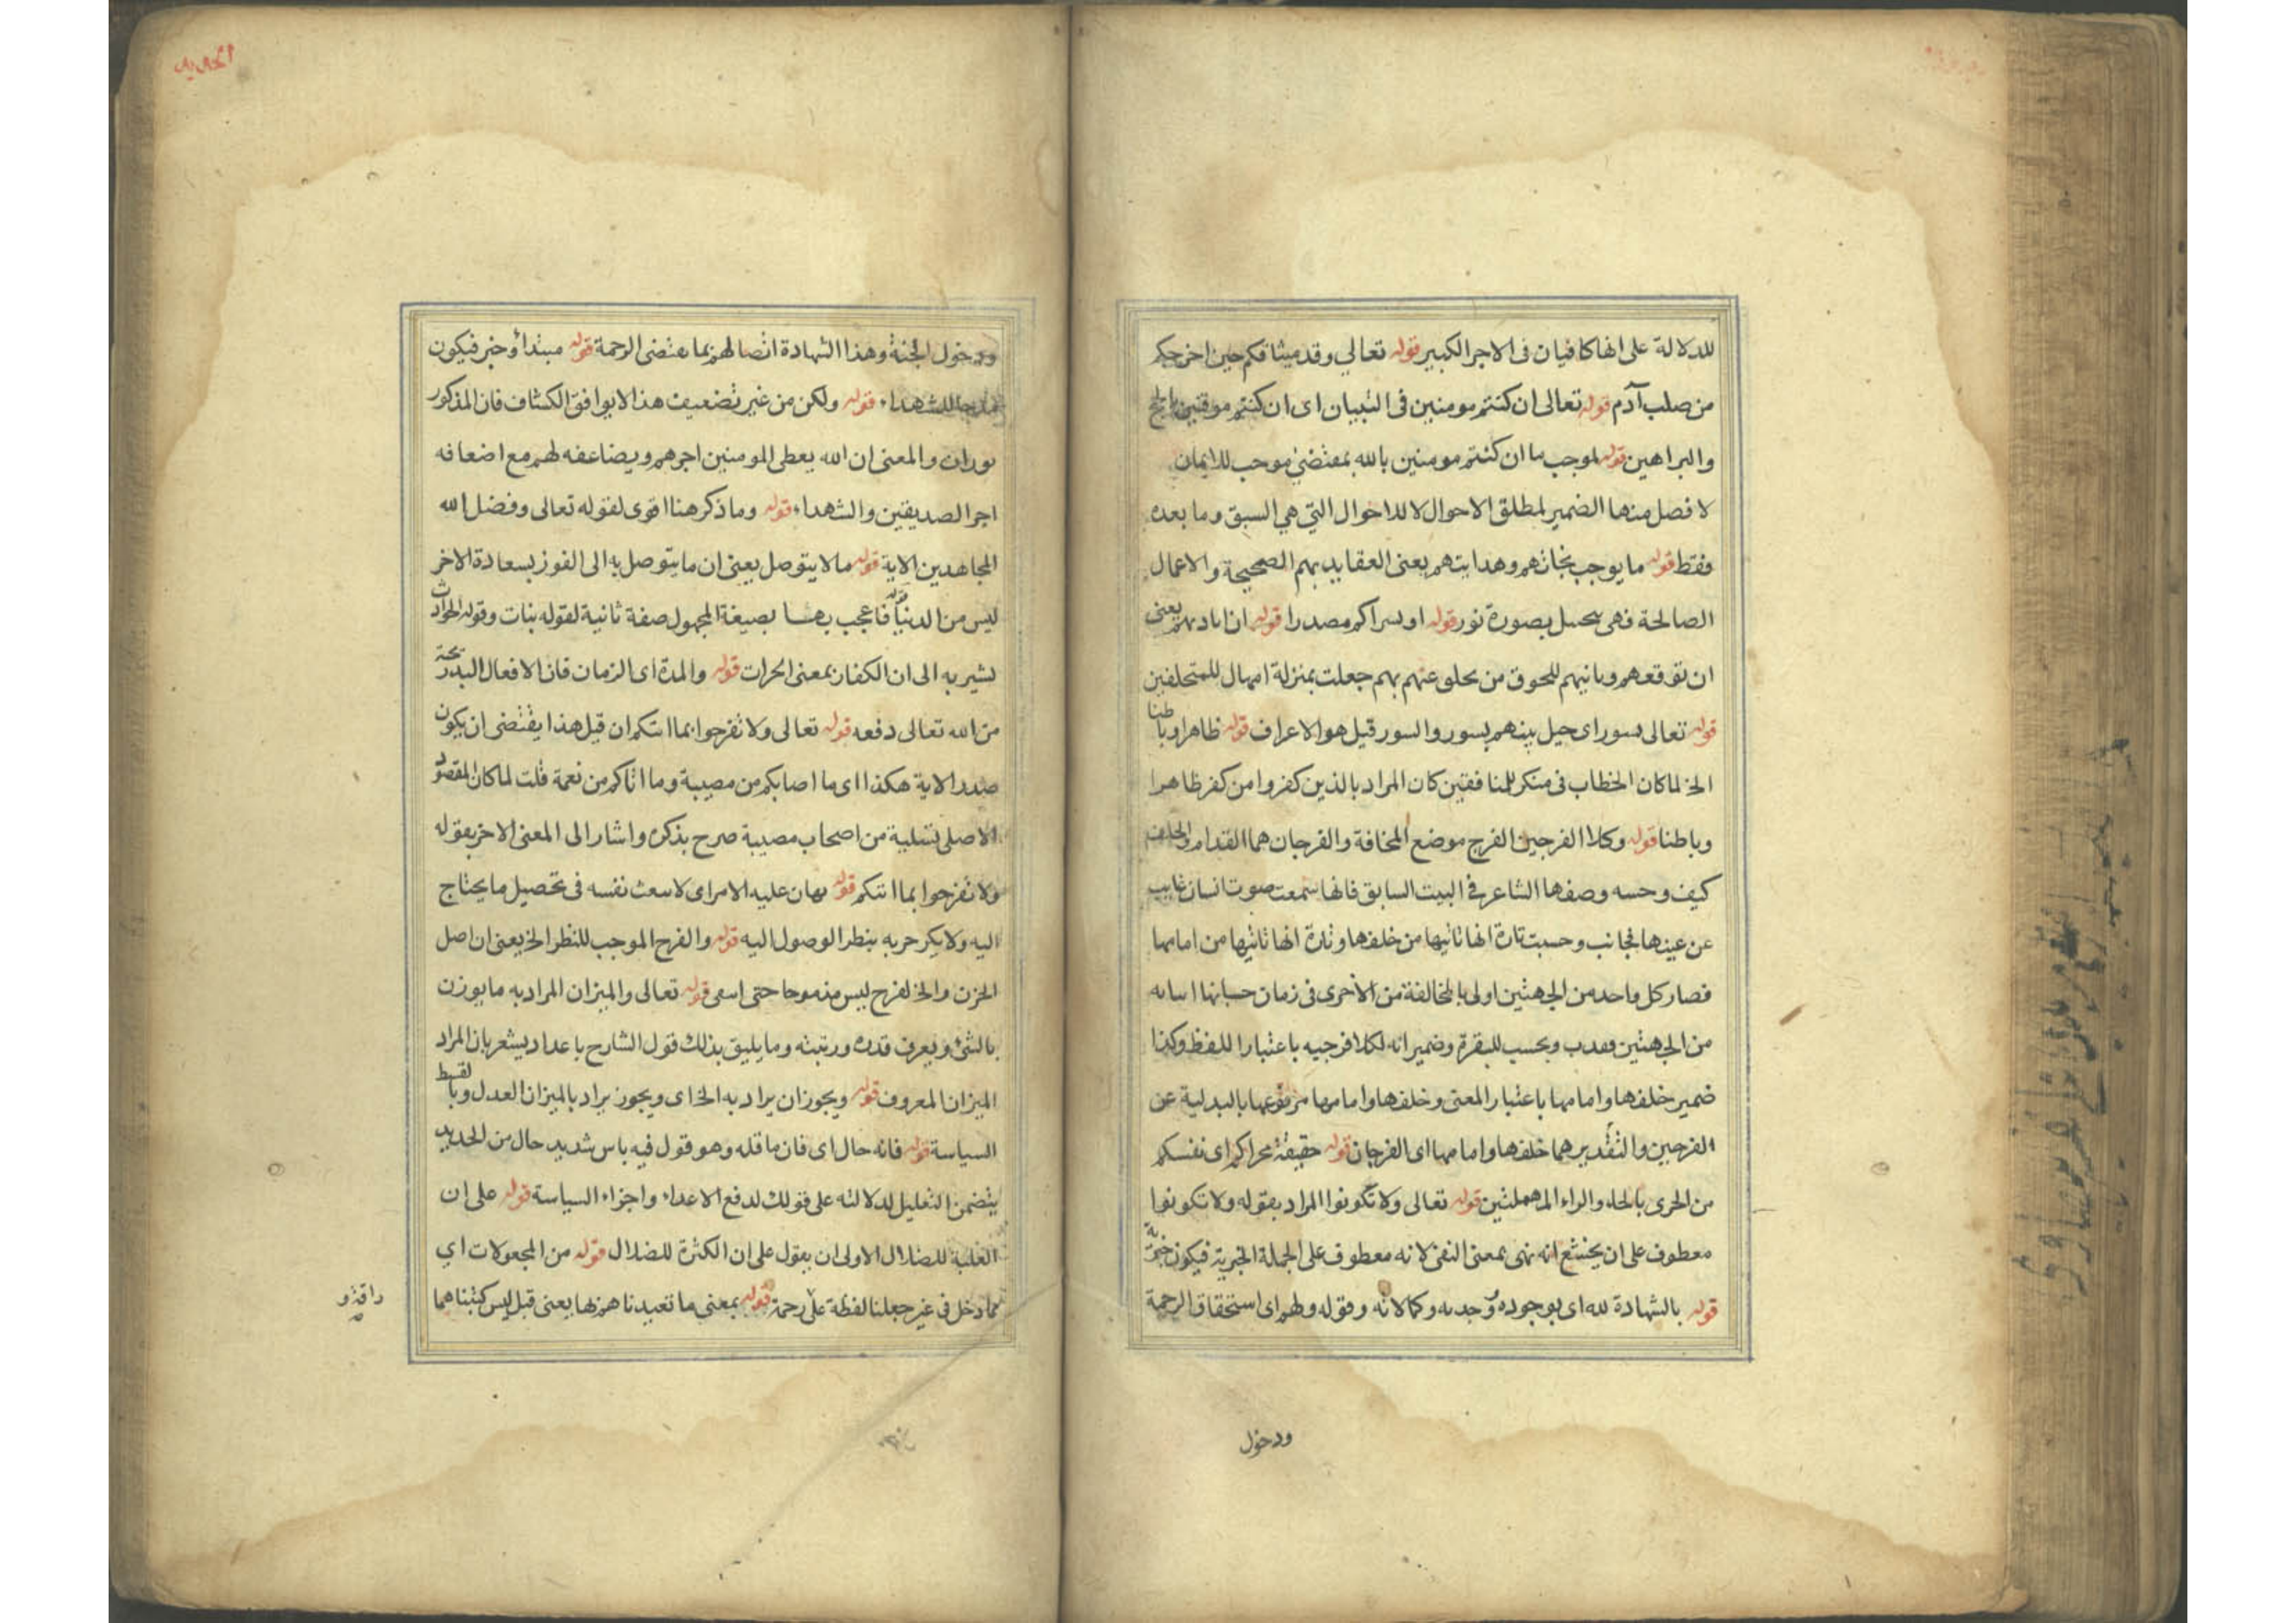 للدلالة على انها كافيان فى الاجر الكبير قوله تعالي وقد ميثاقكم حين اخرجكم
من صلب آدم قوله تعالى ان كنتم مومنين فى التبيان اى ان كنتم موقنين
والبراهين قوله لموجب ما ان كنتم مومنين بالله بمقتضى موجب للايمان
لا فصل منها الضمير لمطلق الاحوال لا للاخوال التي هي السبق وما بعده
فقط قوله ما يوجب نجاتهم وهدايتهم يعنى العقايد بهم الصحيحة والاعمال
الصالحة فهى بصورة نور قوله او بسراكم مصدرا قوله ان يعنى
ان توقعهم للحوق من عنهم بهم جعلت بمنزلة امهال للمتخلفين
قوله تعالى بسور اى حيل بينهم بسور والسور قيل هو الاعراف قوله ظاهرا وباطنا
الخ لما كان الخطاب فى منكر للمنافقين كان المراد بالذين كفروا من كفر ظاهرا
وباطنا قوله وكلا الفرجين الفرج موضع المخافة والفرجان هما القدام والخلف
كيف وحسه وصفها الشاعر في البيت السابق فانها سمعت صوت انسان غايب
عن عينها بجانب وحسبت تارة انها تاتيها من خلفها وتارة انها تاتيها من امامها
فصار كل واحد من الجهتين اولى بالمخالفة من الأخرى فى زمان حسبانها
من الجهتين وبحسب للبقرة وضمير انه لكلا فرجيه باعتبار اللفظ وكذا
ضمير خلفها وامامها باعتبار المعنى وخلفها وامامها مرفوعها بالبدلية عن
الفرجين والتقدير هما خلفها وامامها اى الفرجان قوله حقيقة محراكم اى نفسكم
من الحرى بالحاء والراء المهملتين قوله تعالى ولا تكونوا المراد بقوله ولا تكونوا
معطوف على ان يخشع انه نهى بمعنى النفى لانه معطوف على الجملة الخبرية فيكون خبرية
قوله بالشهادة لله اى بوجوده وكمالاته وقوله ولهم اى استحقاق الرحمة
ودخول
الحديد
ودخول الجنة وهذا الشهادة لهم بما الرحمة قوله مبتدأ وخبر فيكون
للشهداء قوله ولكن من غير تضعيف هذا لا يوافق الكشاف فان المذكور
والمعنى ان الله يعطى المومنين اجرهم ويضاعفه لهم مع اضعافه
اجر الصديقين والشهداء قوله وما ذكر هنا اقوى لقوله تعالى وفضل الله
المجاهدين الاية قوله ما لا يتوصل يعنى ان ما يتوصل به الى الفوز بسعادة الاخر
ليس من الدنيا قوله فاعجب بصيغة المجهول صفة ثانية لقوله بنات وقوله الحراث
يشير به الى ان الكفار بمعنى الحراث قوله والمدة اى الزمان فان الافعال
من الله تعالى دفعه قوله تعالى ولا تفرحوا بما اتيكم ان قيل هذا يقتضى ان يكون
صدر الاية هكذا اى ما اصابكم من مصيبة وما اتاكم من نعمة قلت لما كان المقصود
الاصلى تسلية من اصحاب مصيبة صرح بذكره واشار الى المعنى الاخر بقوله
ولا تفرحوا بما اتيكم قوله يهان عليه الامر اى نفسه فى تحصيل ما يحتاج
اليه ولا يكر حربه بنظر الوصول اليه قوله والفرح الموجب للنظر الخ يعنى ان اصل
الحزن والفرح ليس مذموما حتى قوله تعالى والميزان المراد به ما يوزن
بالشئ ويعرف قدره ورتبته وما يليق بذلك قول الشارح باعداد يشعر بان المراد
الميزان المعروف قوله ويجوز ان يراد به الخ اى ويجوز يراد بالميزان العدل وبالقسط
السياسة قوله فانه حال اى فان ما قله وهو قول فيه باس شديد حال من الحديد
يتضمن التعليل لدلالته على قولك لدفع الاعداء واجزاء السياسة قوله على ان
الغلبة للضلال الاولى ان يقول على ان الكثرة للضلال قوله من المجعولات اي
مما دخل فى غير جعلنا لفظة على رحمة قوله بمعنى ما تعبدناهم بها يعنى قيل ليس كتبنا هما